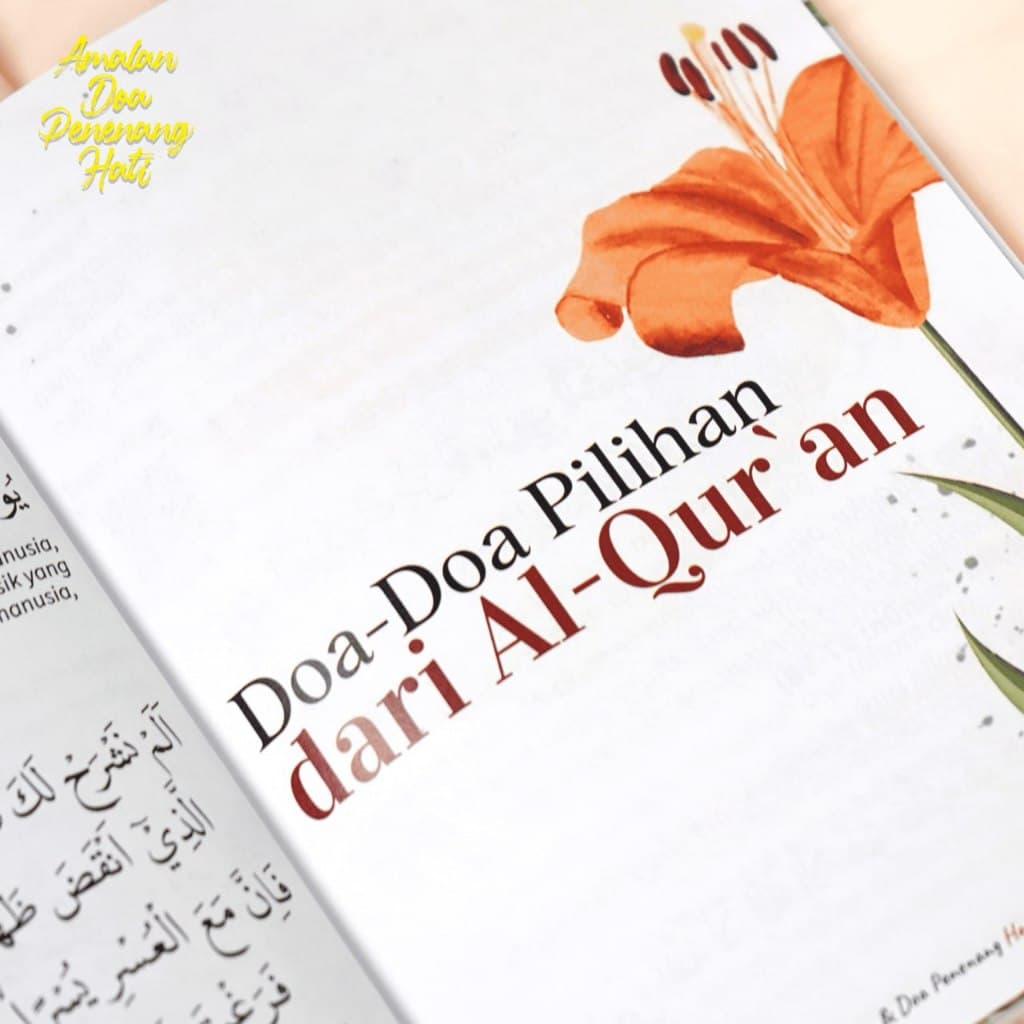 Amalan
Doa
Penenang
Hati
نُوسُ
anusia,
sik yang
manusia,
اَلَمْ نَشْرَحْ لَكَ
الَّذِيْٓ اَنْقَضَ
فَاِنَّ مَعَ الْعُسْرِ يُسْرًا
Doa-Doa Pilihan
dari Al-Qur`an
& Doa Penenang